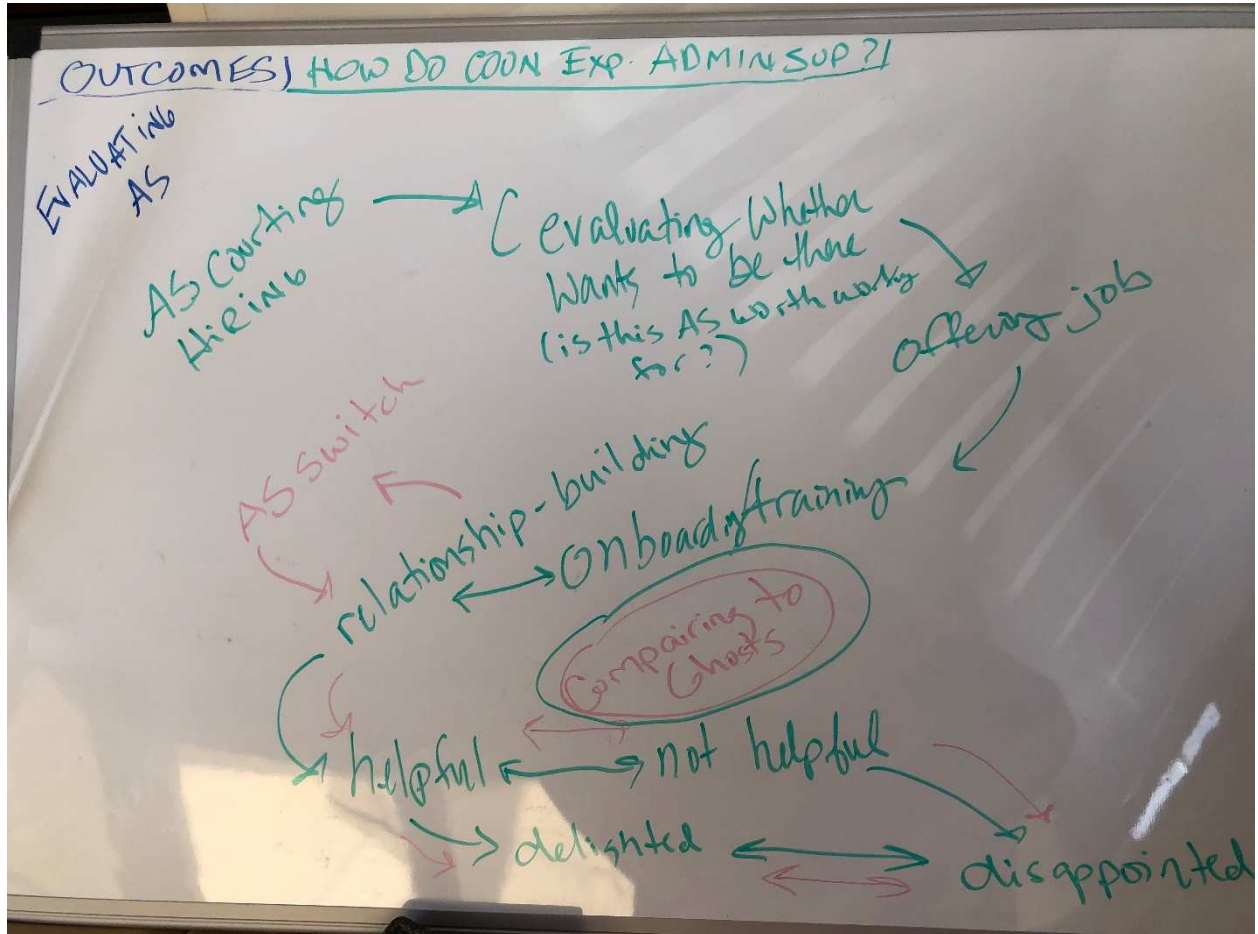 OUTCOMES) HOW DO COON EXP. ADMIN SUP?!
EVALUATING
AS
AS Courting
HIRING
evaluating whether
wants to be there
(is this AS worth workg
for?)
offering job
AS switch
relationship-building
Onboardg/training
Compairing to
Ghosts
helpful
not helpful
delighted
disappointed